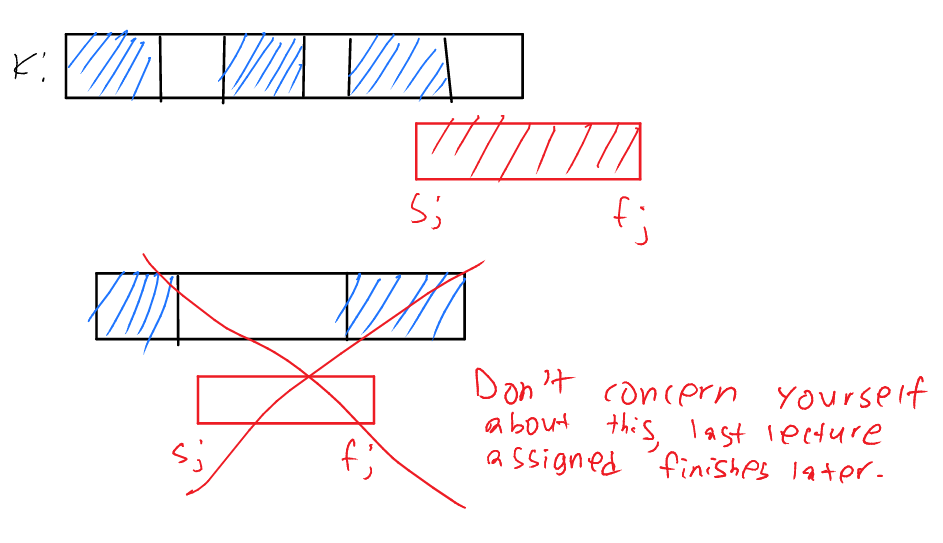 K:
Sj fj
Sj fj
Don't concern yourself
about this, last lecture
assigned finishes later.